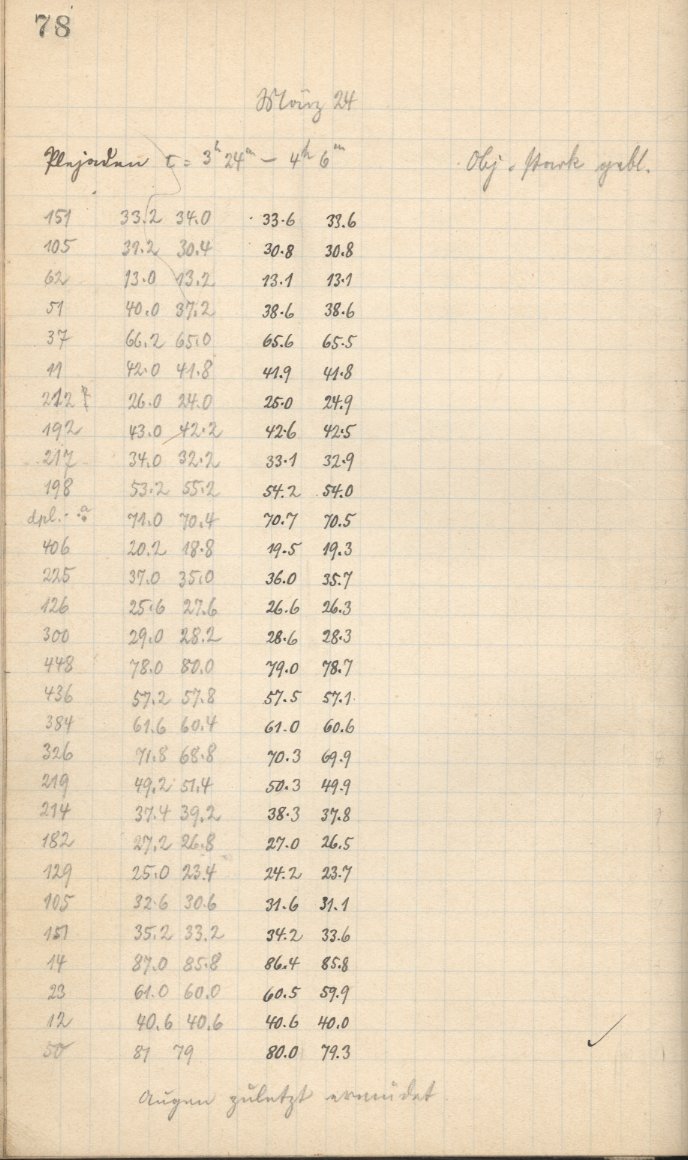 78
März 24
Plejaden τ = 3h 24m – 4h 6m Obj. stark gebl.
151 33.2 34.0 33.6 33.6
105 31.2 30.4 30.8 30.8
62 13.0 13.2 13.1 13.1
51 40.0 37.2 38.6 38.6
37 66.2 65.0 65.6 65.5
11 42.0 41.8 41.9 41.8
212 26.0 24.0 25.0 24.9
192 43.0 42.2 42.6 42.5
217 34.0 32.2 33.1 32.9
198 53.2 55.2 54.2 54.0
dpl. 71.0 70.4 70.7 70.5
406 20.2 18.8 19.5 19.3
225 37.0 35.0 36.0 35.7
126 25.6 27.6 26.6 26.3
300 29.0 28.2 28.6 28.3
448 78.0 80.0 79.0 78.7
436 57.2 57.8 57.5 57.1
384 61.6 60.4 61.0 60.6
326 71.8 68.8 70.3 69.9
219 49.2 51.4 50.3 49.9
214 37.4 39.2 38.3 37.8
182 27.2 26.8 27.0 26.5
129 25.0 23.4 24.2 23.7
105 32.6 30.6 31.6 31.1
151 35.2 33.2 34.2 33.6
14 87.0 85.8 86.4 85.8
23 61.0 60.0 60.5 59.9
12 40.6 40.6 40.6 40.0
50 81 79 80.0 79.3
Augen zuletzt ermüdet